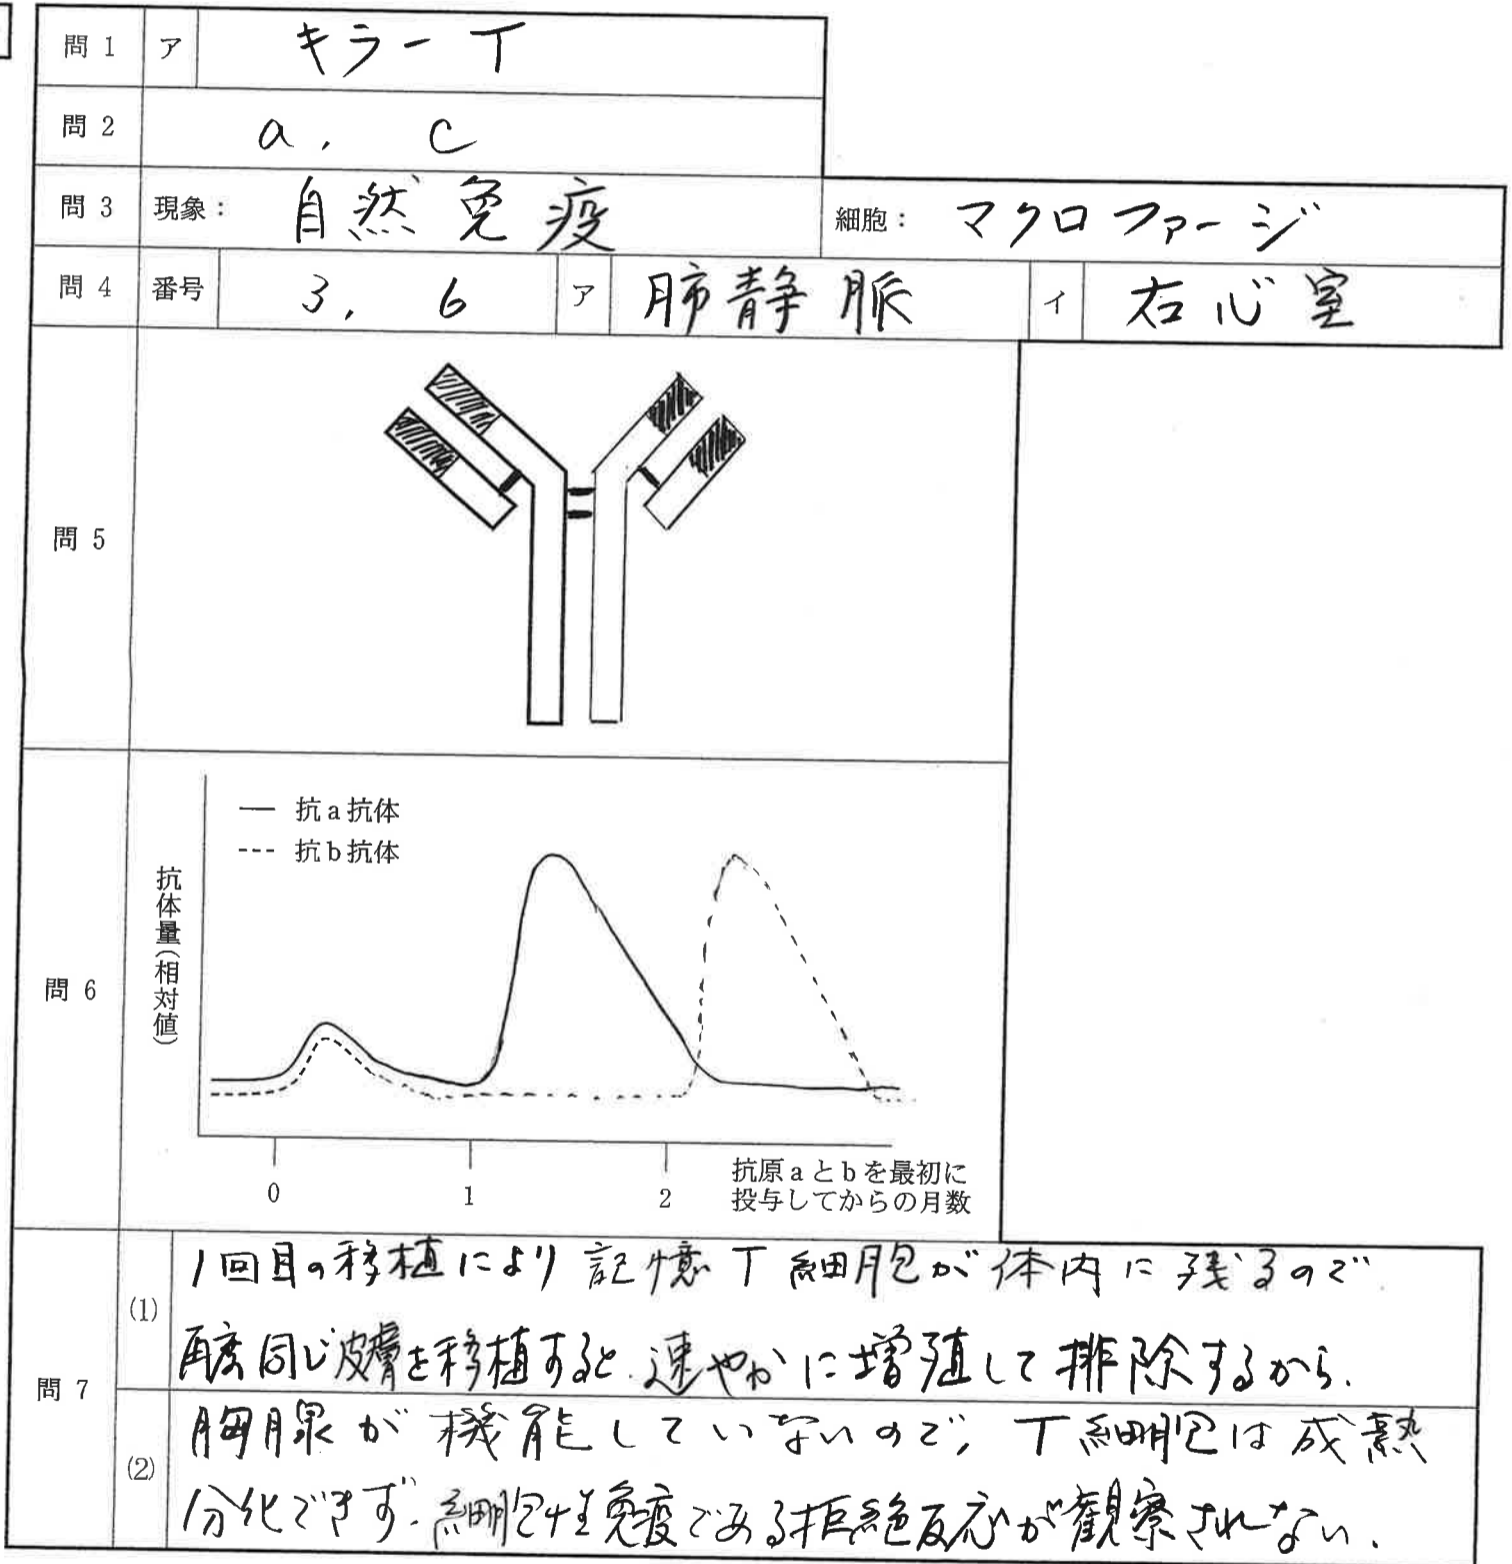 問 1 ア キラーT
問 2 a. c
問 3 現象： 自然免疫 細胞： マクロファージ
問 4 番号 3. 6 ア 肺静脈 イ 右心室
問 5
問 6
― 抗a抗体
--- 抗b抗体
抗体量(相対値)
0 1 2
抗原aとbを最初に
投与してからの月数
問 7
(1)
1回目の移植により記憶T細胞が体内に残るので
再度同じ皮膚を移植すると.速やかに増殖して排除するから.
(2)
胸腺が機能していないので, T細胞は成熟
分化できず.細胞性免疫である拒絶反応が観察されない.